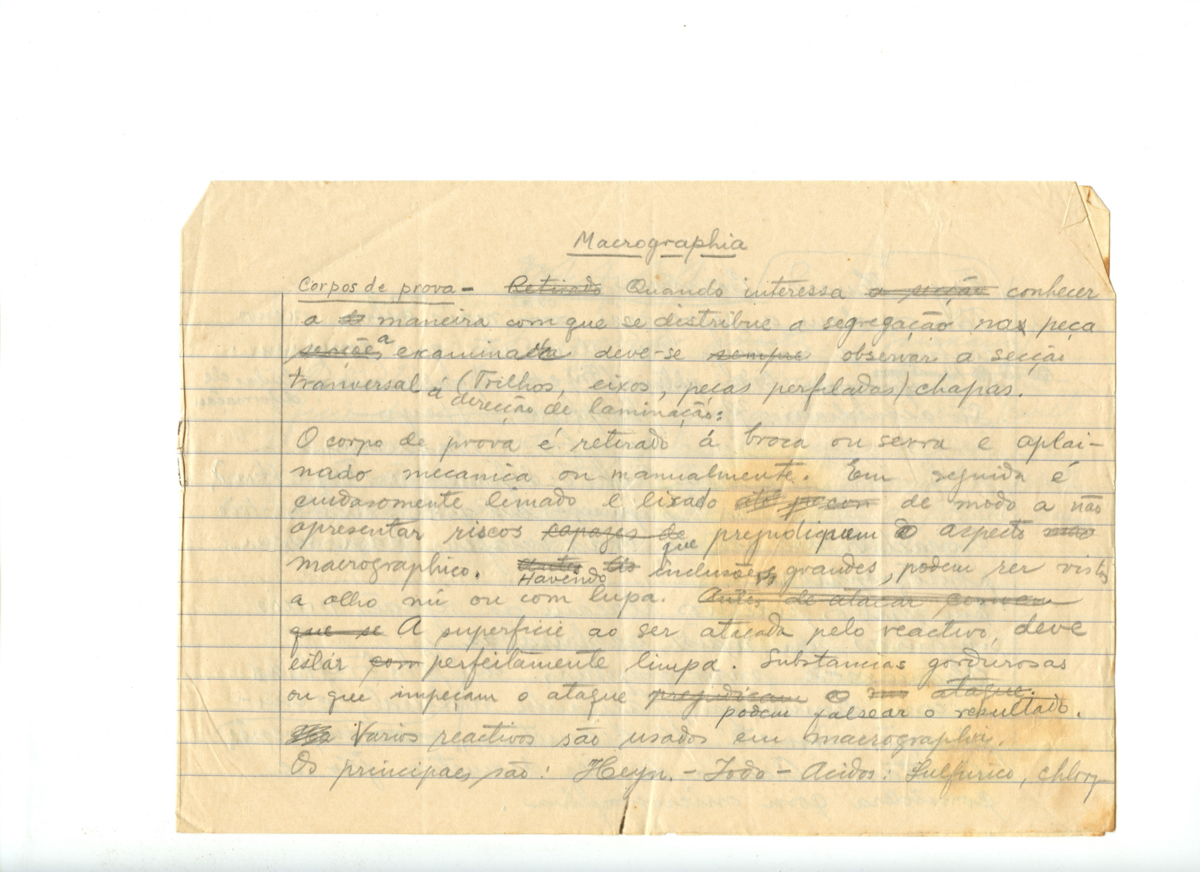 Macrographia
Corpos de prova - Retirado Quando interessa a secção conhecer
a maneira com que se distribue a segregação na peça
secções a examinada deve-se sempre observar a secção
tranversal (Trilhos, eixos, peças perfilados) chapas.
á direcção de laminação:
O corpo de prova é retirado á broca ou serra e aplai-
nado mecanica ou manualmente. Em seguida é
cuidasomente limado e lixado até de modo a não
apresentar riscos capazes de que prejudiquem o aspecto
macrographico. Antes Havendo inclusões grandes, podem ser vistas
a olho nú ou com lupa. Antes de atacar convem
que se A superficie ao ser atacada pelo reactivo, deve
estár com perfeitamente limpa. Substancias gordurosas
ou que impeçam o ataque prejudicam o ataque.
podem falsear o resultado.
Varios reactivos são usados em macrographia.
Os principaes são: Heyn. - Iodo - Acidos: Sulfurico, chlory